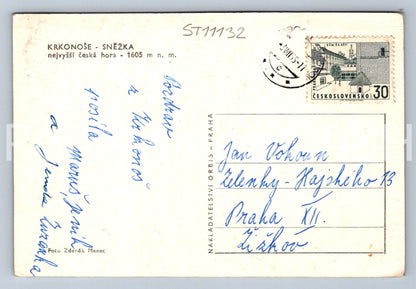 KRKONOŠE - SNĚŽKA
nejvyšší česká hora - 1605 m n. m.
ST11132
ČESKOSLOVENSKO
30
Pozdrav
z Krkonoš
posílá
Maruš, Jeník
a Jenda
Foto Zdeněk Menec
NAKLADATELSTVÍ ORBIS - PRAHA
Jan Vohoun
Zelenky-Hajského 13
Praha XII.
Žižkov